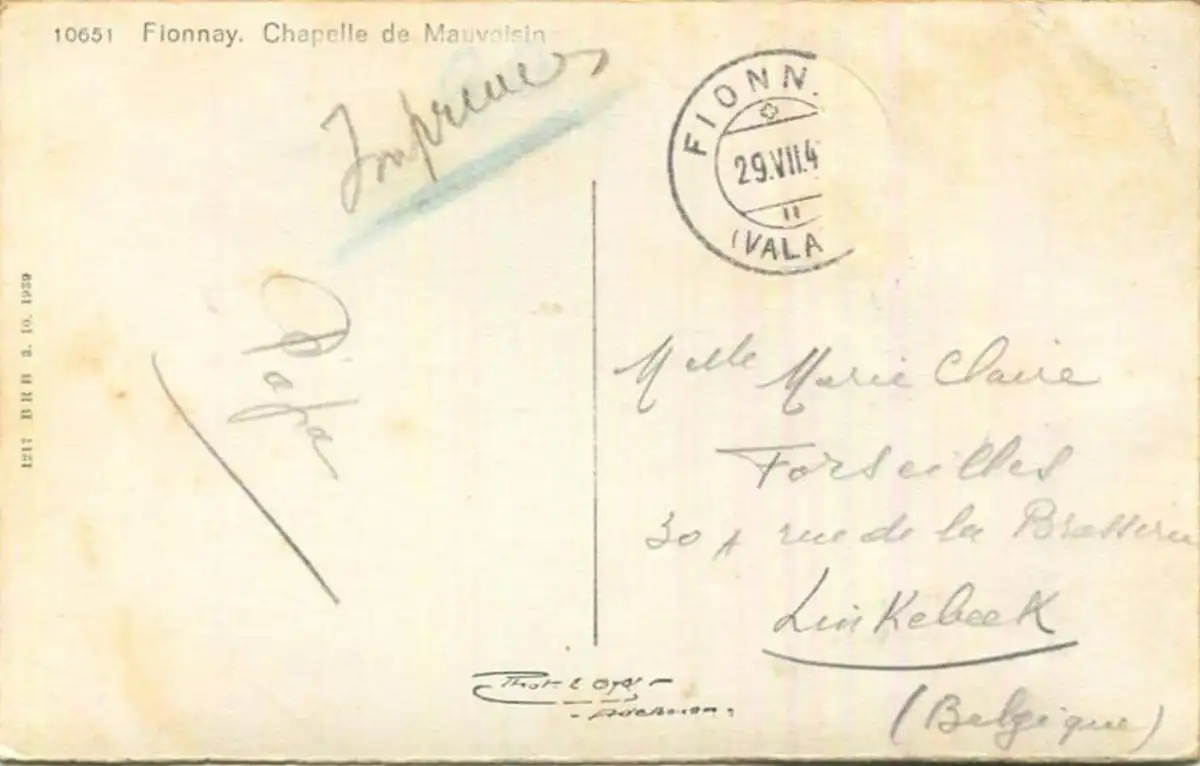 10651 Fionnay. Chapelle de Mauvoisin
Imprimés
FIONN.
29.VII.4
(VALA
1217 BRB 3. 10. 1939
Papa
Melle Marie Claire
Forseilles
30 A rue de la Brasserie
Linkebeek
(Belgique)